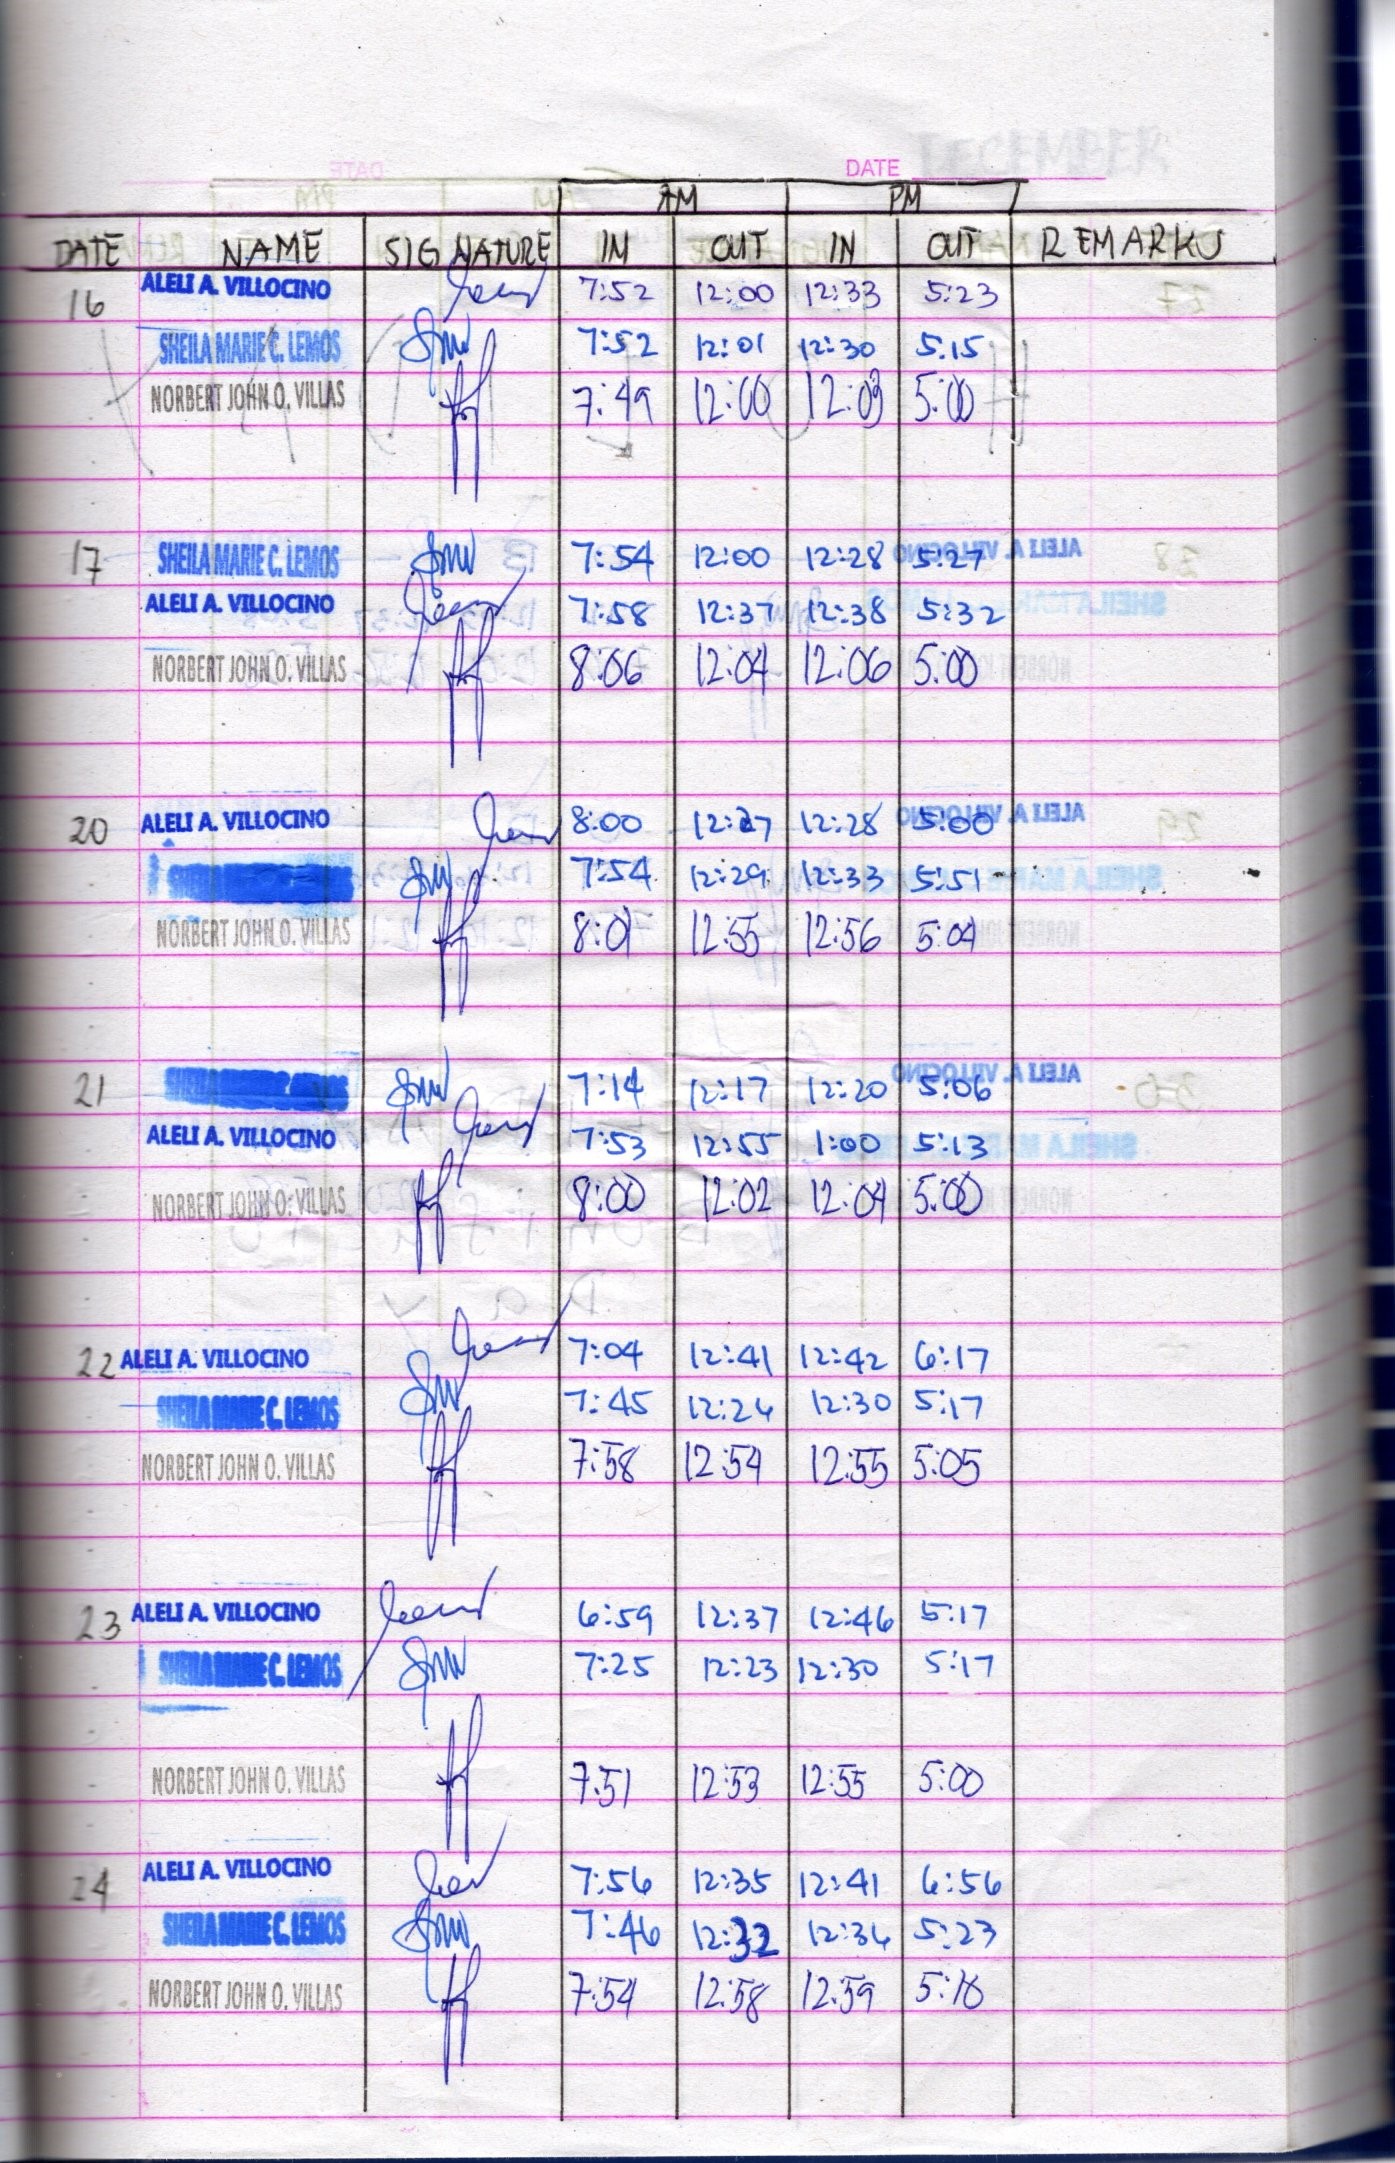 DATE
AM PM
DATE NAME SIGNATURE IN OUT IN OUT REMARKS
16 ALELI A. VILLOCINO 7:52 12:00 12:33 5:23
SHEILA MARIE C. LEMOS 7:52 12:01 12:30 5:15
NORBERT JOHN O. VILLAS 7:49 12:00 12:03 5:00
17 SHEILA MARIE C. LEMOS 7:54 12:00 12:28 5:27
ALELI A. VILLOCINO 7:58 12:37 12:38 5:32
NORBERT JOHN O. VILLAS 8:06 12:04 12:06 5:00
20 ALELI A. VILLOCINO 8:00 12:27 12:28 5:00
SHEILA MARIE C. LEMOS 7:54 12:29 12:33 5:51
NORBERT JOHN O. VILLAS 8:01 12:55 12:56 5:04
21 SHEILA MARIE C. LEMOS 7:14 12:17 12:20 5:06
ALELI A. VILLOCINO 7:53 12:55 1:00 5:13
NORBERT JOHN O. VILLAS 8:00 12:02 12:04 5:00
22 ALELI A. VILLOCINO 7:04 12:41 12:42 6:17
SHEILA MARIE C. LEMOS 7:45 12:26 12:30 5:17
NORBERT JOHN O. VILLAS 7:58 12:54 12:55 5:05
23 ALELI A. VILLOCINO 6:59 12:37 12:46 5:17
SHEILA MARIE C. LEMOS 7:25 12:23 12:30 5:17
NORBERT JOHN O. VILLAS 7:51 12:53 12:55 5:00
24 ALELI A. VILLOCINO 7:56 12:35 12:41 6:56
SHEILA MARIE C. LEMOS 7:46 12:32 12:36 5:23
NORBERT JOHN O. VILLAS 7:54 12:58 12:59 5:18